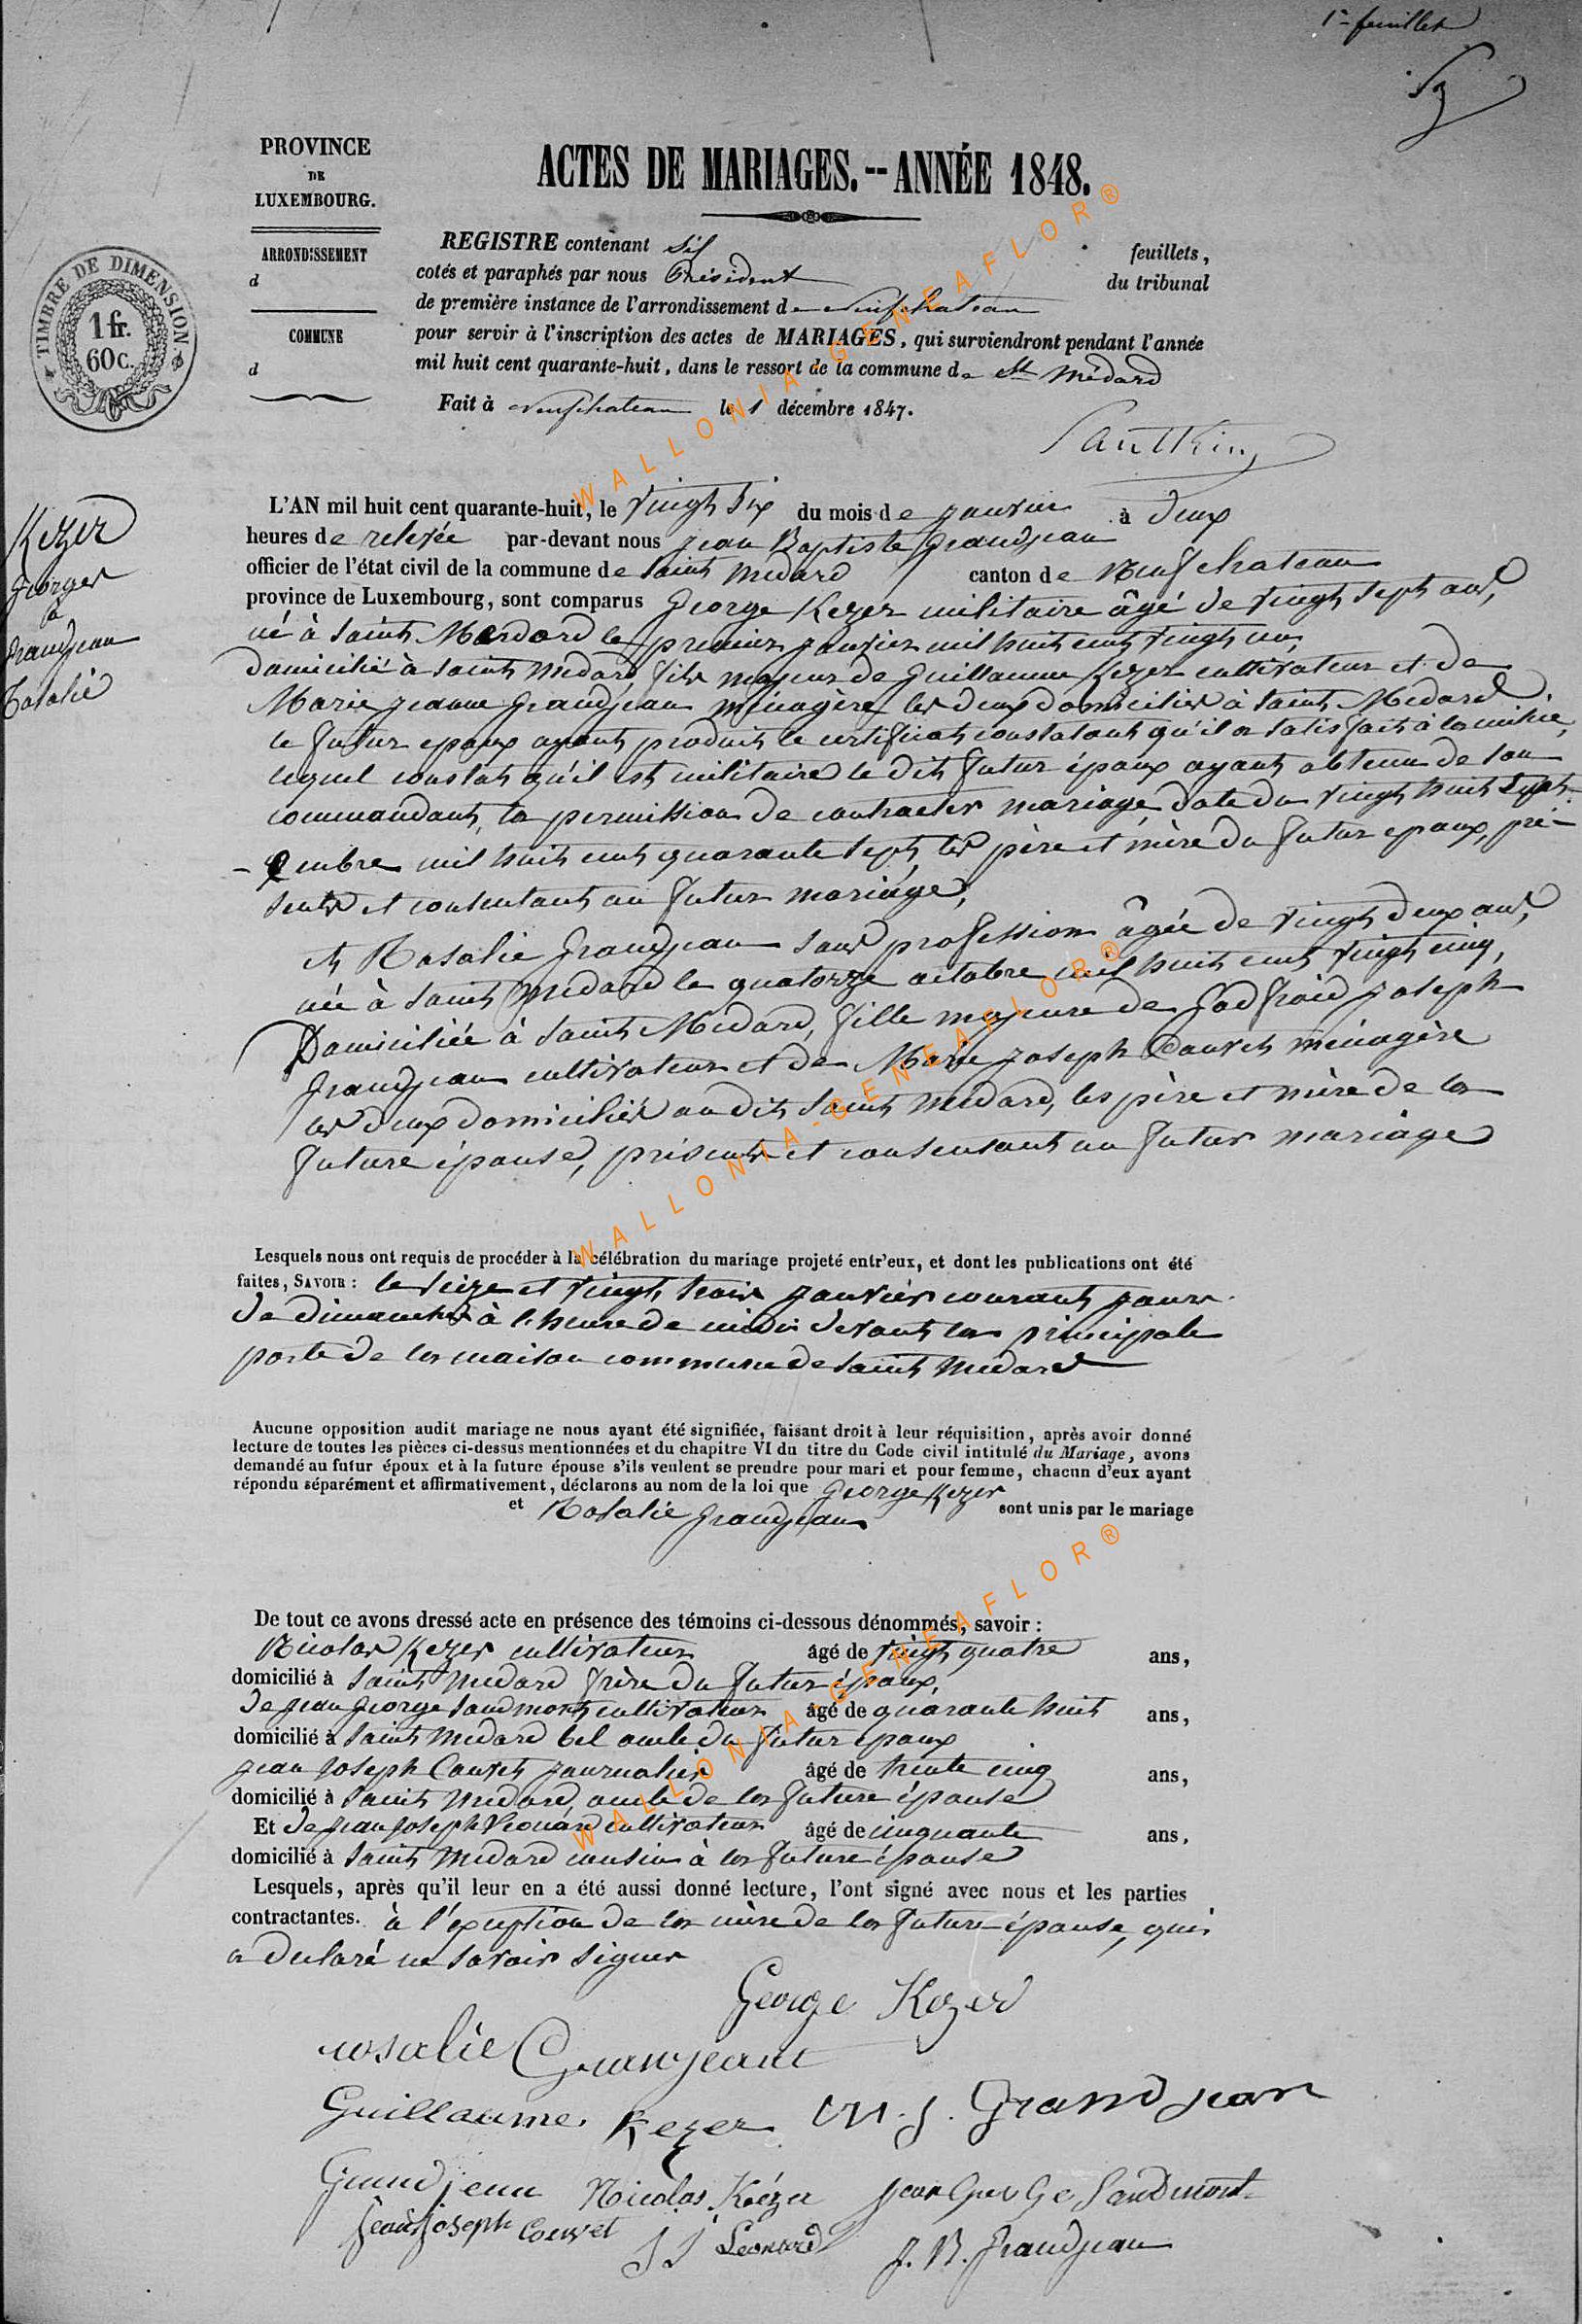 1er feuillet
PROVINCE
DE
LUXEMBOURG.
ARRONDISSEMENT
d
COMMUNE
d
TIMBRE DE DIMENSION
1 fr.
60 c.
ACTES DE MARIAGES.--ANNÉE 1848.
REGISTRE contenant six feuillets,
cotés et paraphés par nous Président du tribunal
de première instance de l'arrondissement de Neufchateau
pour servir à l'inscription des actes de MARIAGES, qui surviendront pendant l'année
mil huit cent quarante-huit, dans le ressort de la commune de St Médard
Fait à Neufchateau le 1 décembre 1847.
Kezer
George
à
Grandjean
Rosalie
L'AN mil huit cent quarante-huit, le vingt six du mois de janvier à deux
heures de relevée par-devant nous Jean Baptiste Grandjean
officier de l'état civil de la commune de Saint Médard canton de Neufchateau
province de Luxembourg, sont comparus George Kezer militaire âgé de vingt sept ans,
né à Saint Merdard le premier janvier mil huit cent vingt un,
domicilié à Saint Médard, fils majeur de Guillaume Kezer cultivateur et de
Marie Jeanne Grandjean ménagère les deux domiciliés à Saint Médard.
le futur epoux ayant produit le certificat constatant qu'il a satisfait à la milice,
lequel constat qu'il est militaire le dit futur époux ayant obtenu de son
commandant, la permission de contracter mariage, date du vingt huit sept-
-embre mil huit cent quarante sept, les père et mère du futur epoux, pré-
sents et consentant au futur mariage,
et Rosalie Grandjean sans profession âgée de vingt deux ans,
née à Saint Médard le quatorze octobre mil huit cent vingt cinq,
Domiciliée à Saint Médard, fille majeure de Godfroid Joseph
Grandjean cultivateur et de Marie Joseph Cauvet ménagère
les deux domiciliés au dit Saint Médard, les père et mère de la
future épouse, présents et consentant au futur mariage
Lesquels nous ont requis de procéder à la célébration du mariage projeté entr'eux, et dont les publications ont été
faites, SAVOIR : le seize et vingt trois janvier courant jours
de dimanches à l'heure de midi devant la principale
porte de la maison commune de Saint Médard
Aucune opposition audit mariage ne nous ayant été signifiée, faisant droit à leur réquisition, après avoir donné
lecture de toutes les pièces ci-dessus mentionnées et du chapitre VI du titre du Code civil intitulé du Mariage, avons
demandé au futur époux et à la future épouse s'ils veulent se prendre pour mari et pour femme, chacun d'eux ayant
répondu séparément et affirmativement, déclarons au nom de la loi que George Kezer
et Rosalie Grandjean sont unis par le mariage
De tout ce avons dressé acte en présence des témoins ci-dessous dénommés, savoir :
Nicolas Kezer cultivateur âgé de vingt quatre ans,
domicilié à Saint Médard frère du futur époux,
de Jean George Sandmont cultivateur âgé de quarante huit ans,
domicilié à Saint Médard bel oncle du futur epoux
Jean Joseph Cauvet journalier âgé de trente cinq ans,
domicilié à Saint Médard, oncle de la future épouse
Et de Jean Joseph Léonard cultivateur âgé de cinquante ans,
domicilié à Saint Médard cousin à la future épouse
Lesquels, après qu'il leur en a été aussi donné lecture, l'ont signé avec nous et les parties
contractantes. à l'exception de la mère de la future épouse, qui
a déclaré ne savoir signer
George Kezer
rosalie Granjeant
Guillaume Kezer M. J. Grandjean
Grandjean Nicolas Kézer Jean George Sandmont
Jean Joseph Couvet J J Léonard J. B. Grandjean
WALLONIA-GENEAFLOR®
WALLONIA-GENEAFLOR®
WALLONIA-GENEAFLOR®